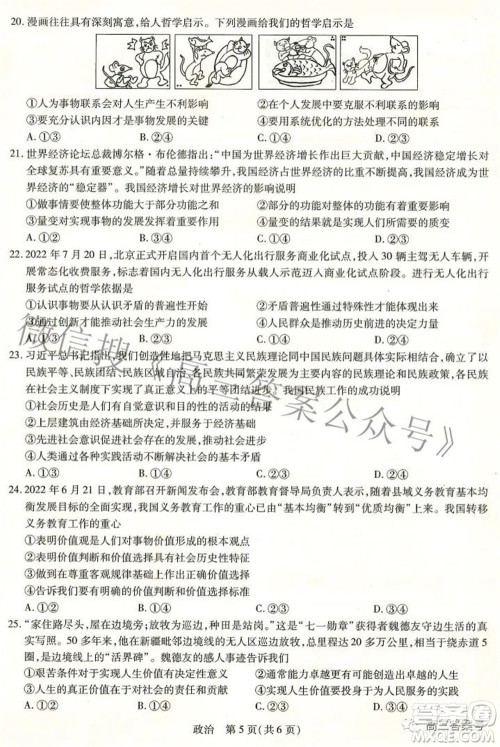 20. 漫画往往具有深刻寓意,给人哲学启示。下列漫画给我们的哲学启示是
①人为事物联系会对人生产生不利影响 ②在个人发展中要克服不良影响
③要充分认识内因才是事物发展的关键 ④要用系统优化的方法处理不同联系
A. ①③ B. ②④ C. ①② D. ③④
21. 世界经济论坛总裁博尔格·布伦德指出:“中国为世界经济增长作出巨大贡献,中国经济稳定增长对
全球复苏具有重要意义。”我国经济增长对世界经济增长的贡献率不断攀升,成为带动世界经济增
长的“稳定器”。我国经济增长对世界经济增长的影响说明
①做好事情要发挥整体功能大于部分功能之和 ②部分功能对整体功能具有重要影响
③量变对实现事物的发展具有重要意义 ④量变的结果就是实现人们所需要的质变
A. ①② B. ①④ C. ②③ D. ③④
22. 2022 年 7 月 20 日,北京正式开启国内首个无人化出行服务商业化试点,投入 30 辆主驾无人车辆,开
展常态化收费服务,标志着国内无人化出行服务从载人示范迈入商业化试点阶段。进行无人化出行
服务试点的哲学依据是
①办事情要认从认识矛盾的普遍性开始 ②矛盾普遍性通过特殊性体现出来
③通过创新才能推动社会生产力的发展 ④人民群众是推动历史进步的决定力量
A. ①③ B. ①④ C. ②③ D. ②④
23. 习近平总书记指出:“我们创造性地把马克思主义民族理论同中国民族问题具体实际相结合,确立了以
民族平等、民族团结、民族区域自治、各民族共同繁荣发展为主要内容的民族理论和民族政策,各民族
在社会主义制度下实现了真正意义上的平等团结进步!”我国民族工作的成功说明
①社会历史的发展是前进性与曲折性的统一
②上层建筑由经济基础所决定,并反作用于经济基础
③先进社会意识促进社会存在的发展
④人类社会发展的趋势是前进的、上升的
A. ①② B. ①④ C. ②③ D. ③④
24. 2022 年 6 月 21 日,教育部召开新闻发布会,教育部教育督导局负责人表示,随着县域义务教育基本均
衡发展目标的全面实现,我国义务教育工作的重心已从“基本均衡”转到“优质均衡”上来。我国转移
义务教育工作的重心
①表明价值观是人们对事物价值形成的根本观点
②表明价值判断和价值选择具有社会历史性特征
③能够在尊重客观规律基础上作出价值判断和价值选择
④在价值判断和价值选择基础上形成了正确价值观
A. ①③ B. ①④ C. ②③ D. ②④
25. “家住路尽头,屋在边境旁;放牧为巡边,种田是站岗。”这是“七一勋章”获得者魏德友守边生活的真
实写照。50 多年来,他在新疆毗邻边境线的无人区巡边放牧,总里程达 20 多万公里,相当于绕赤道 5
圈,是边境线上的“活界碑”。魏德友的感人事迹告诉我们
①艰苦劳动才能实现更多人生价值 ②通常能力越大越有更大的贡献
③在奉献中实现更多人生价值 ④有崇高的理想才能更好实现人生价值
A. ①② B. ①③ C. ②④ D. ③④
政治 第 5 页(共 6 页)
微信搜《高三答案公众号》